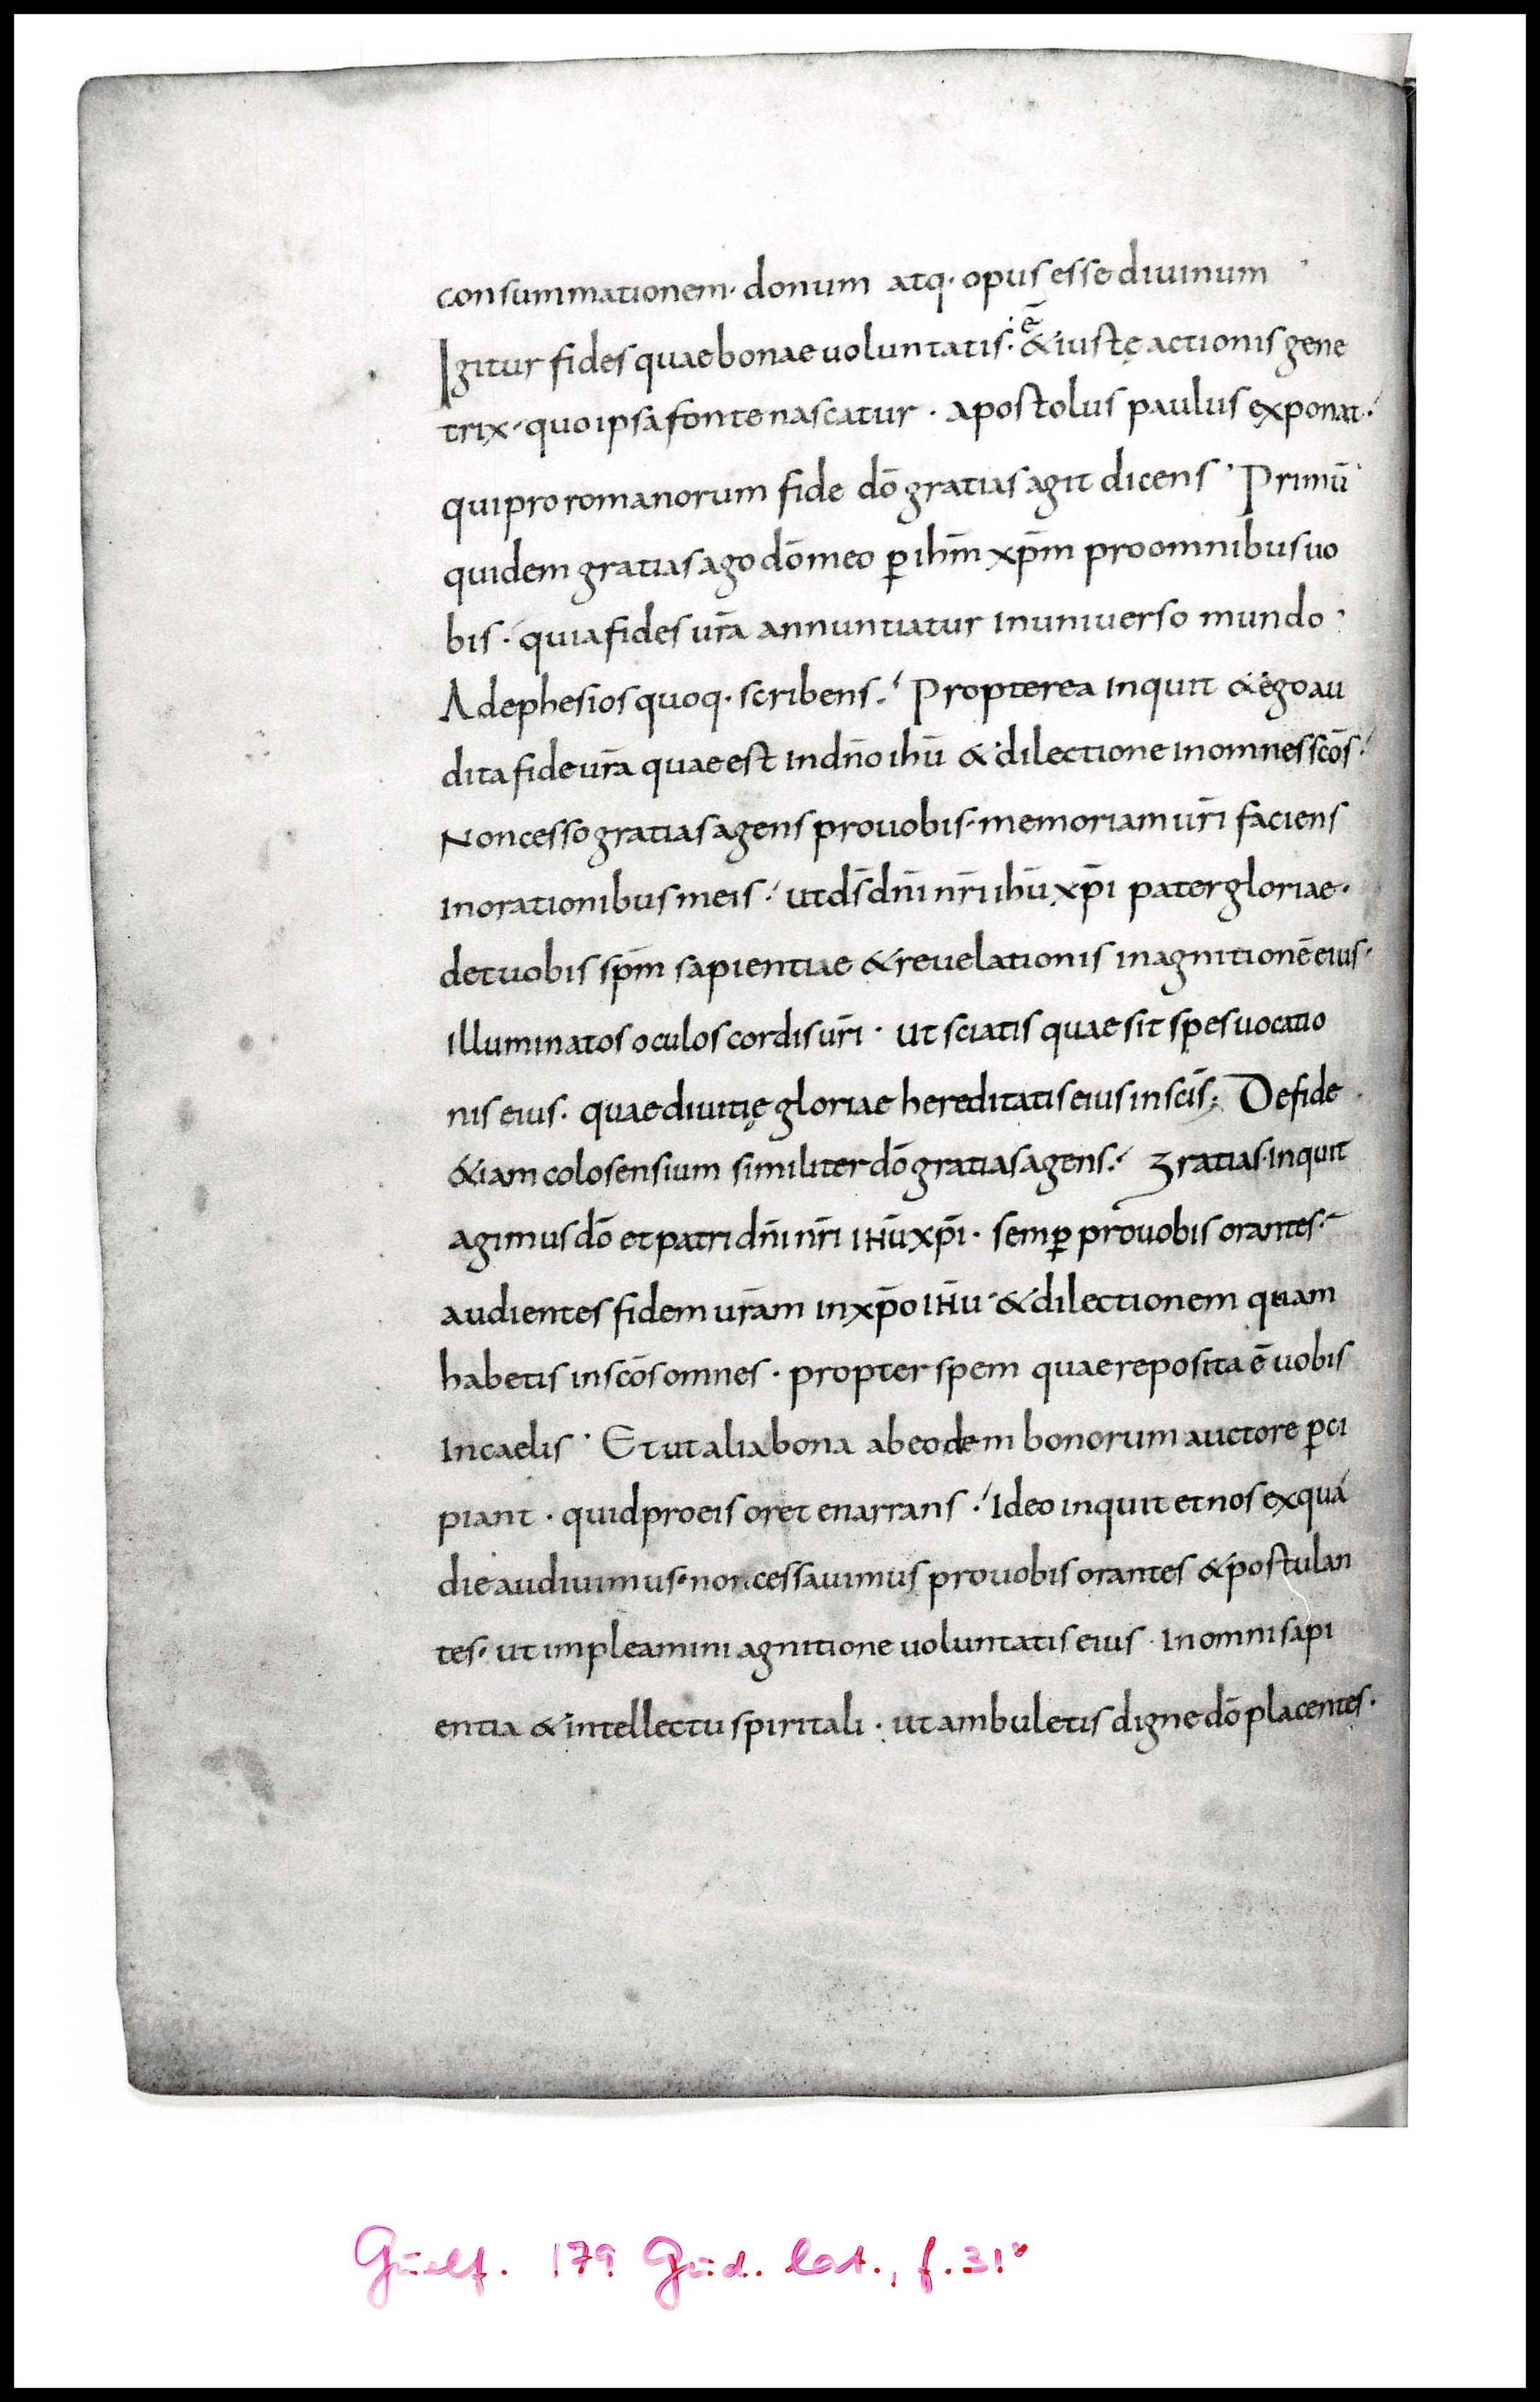 consummationem· donum atq· opus esse diuinum
Igitur fides quae bonae uoluntatis·́ ē & iustę actionis gene
trix·́ quo ipsa fonte nascatur · apostolus paulus exponat·́
qui pro romanorum fide dō gratias agit dicens · Primū
quidem gratias ago dō meo ꝑ ihm̄ xp̄m pro omnibus uo
bis ·́ quia fides ur̄a annuntiatur in uniuerso mundo ·
Ad ephesios quoq· scribens·́ Propterea inquit & ego au
dita fide ur̄a quae est in dn̄o ihū & dilectione in omnes scōs·́
Non cesso gratias agens pro uobis· memoriam ur̄i faciens
in orationibus meis·́ ut ds̄ dn̄i nr̄i ihū xp̄i pater gloriae·
det uobis sp̄m sapientiae & reuelationis in agnitionē eius·
illuminatos oculos cordis ur̄i · ut sciatis quae sit spes uocatio
nis eius· quae diuitię gloriae hereditatis eius in scīs; De fide
&iam colosensium similiter dō gratias agens·́ Gratias· inquit
agimus dō et patri dn̄i nr̄i iHū xp̄i · semꝑ pro uobis orantes·́
audientes fidem ur̄am in xp̄o iHū·́ & dilectionem quam
habetis in scōs omnes · propter spem quae reposita ē uobis
in caelis · Et ut alia bona ab eodem bonorum auctore ꝑci
piant · quid pro eis oret enarrans ·́ Ideo inquit et nos ex qua
die audiuimus· non cessauimus pro uobis orantes & postulan
tes· ut impleamini agnitione uoluntatis eius · In omni sapi
entia & intellectu spiritali · ut ambuletis digne dō placentes·
Guelf. 179 Gud. lat., f. 31ᵛ